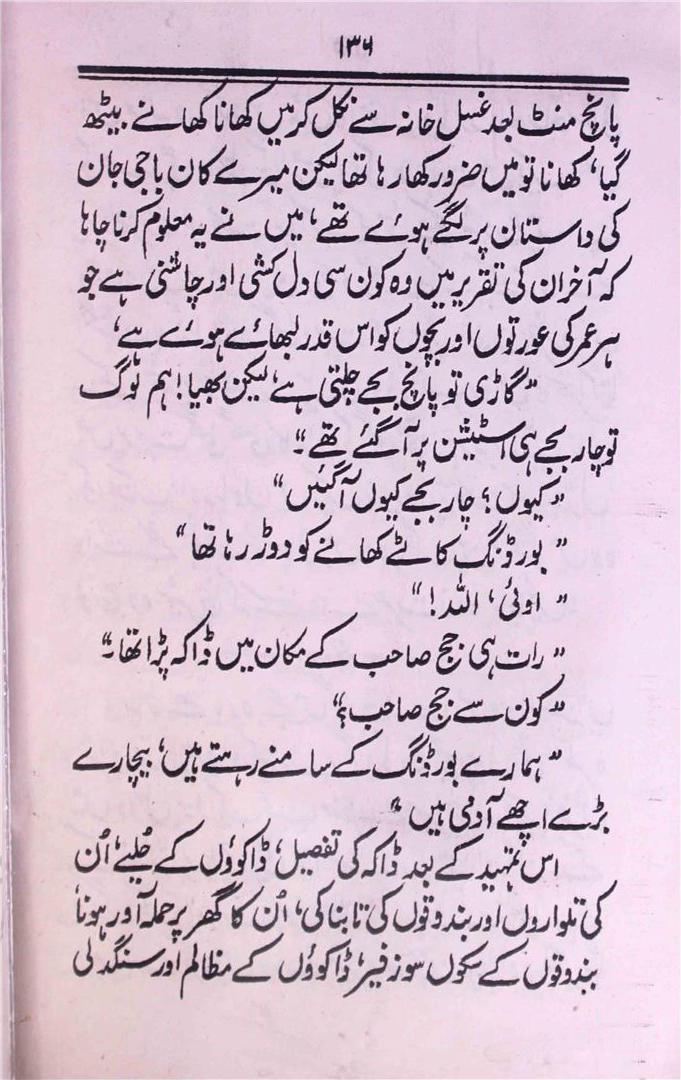 ۱۳۶
پانچ منٹ بعد غسل خانہ سے نکل کر میں کھانا کھانے بیٹھ
گیا، کھانا تو میں ضرور کھا رہا تھا لیکن میرے کان باجی جان
کی داستان پر لگے ہوئے تھے، میں نے یہ معلوم کرنا چاہا
کہ آخر ان کی تقریر میں وہ کون سی دل کشی اور چاشنی ہے جو
ہر عمر کی عورتوں اور بچوں کو اس قدر لبھائے ہوئے ہے،
"گاڑی تو پانچ بجے چلتی ہے، لیکن بھیا! ہم لوگ
تو چار بجے ہی اسٹیشن پر آ گئے تھے۔"
"کیوں؟ چار بجے کیوں آ گئیں"
"بورڈنگ کاٹے کھانے کو دوڑ رہا تھا"
"اوئی، اللہ!"
"رات ہی جج صاحب کے مکان میں ڈاکہ پڑا تھا۔"
"کون سے جج صاحب؟"
"ہمارے بورڈنگ کے سامنے رہتے ہیں، بیچارے
بڑے اچھے آدمی ہیں"
اس تمہید کے بعد ڈاکہ کی تفصیل، ڈاکوؤں کے حُلیے، اُن
کی تلواروں اور بندوقوں کی تابناکی، اُن کا گھر پر حملہ آور ہونا،
بندوقوں کے سکوں سوز فیر، ڈاکوؤں کے مظالم اور سنگدلی